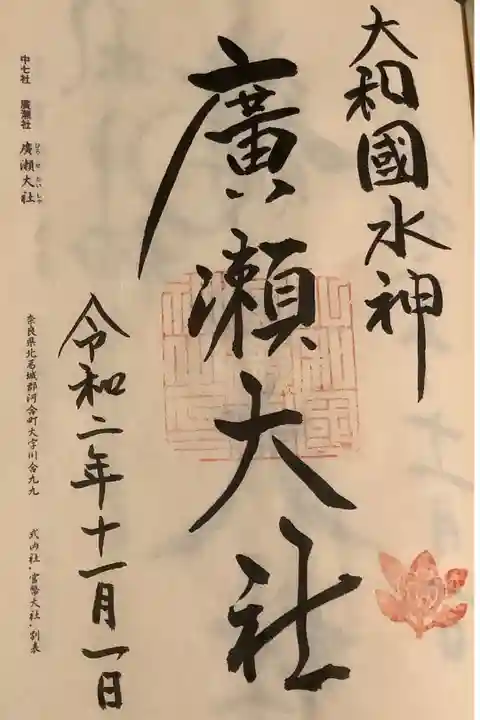 大和國水神
廣瀬大社
令和二年十一月一日
中七社 廣瀬社 廣瀬大社
ひろせたいしゃ
奈良県北葛城郡河合町大字川合九九
式内社・官幣大社・別表